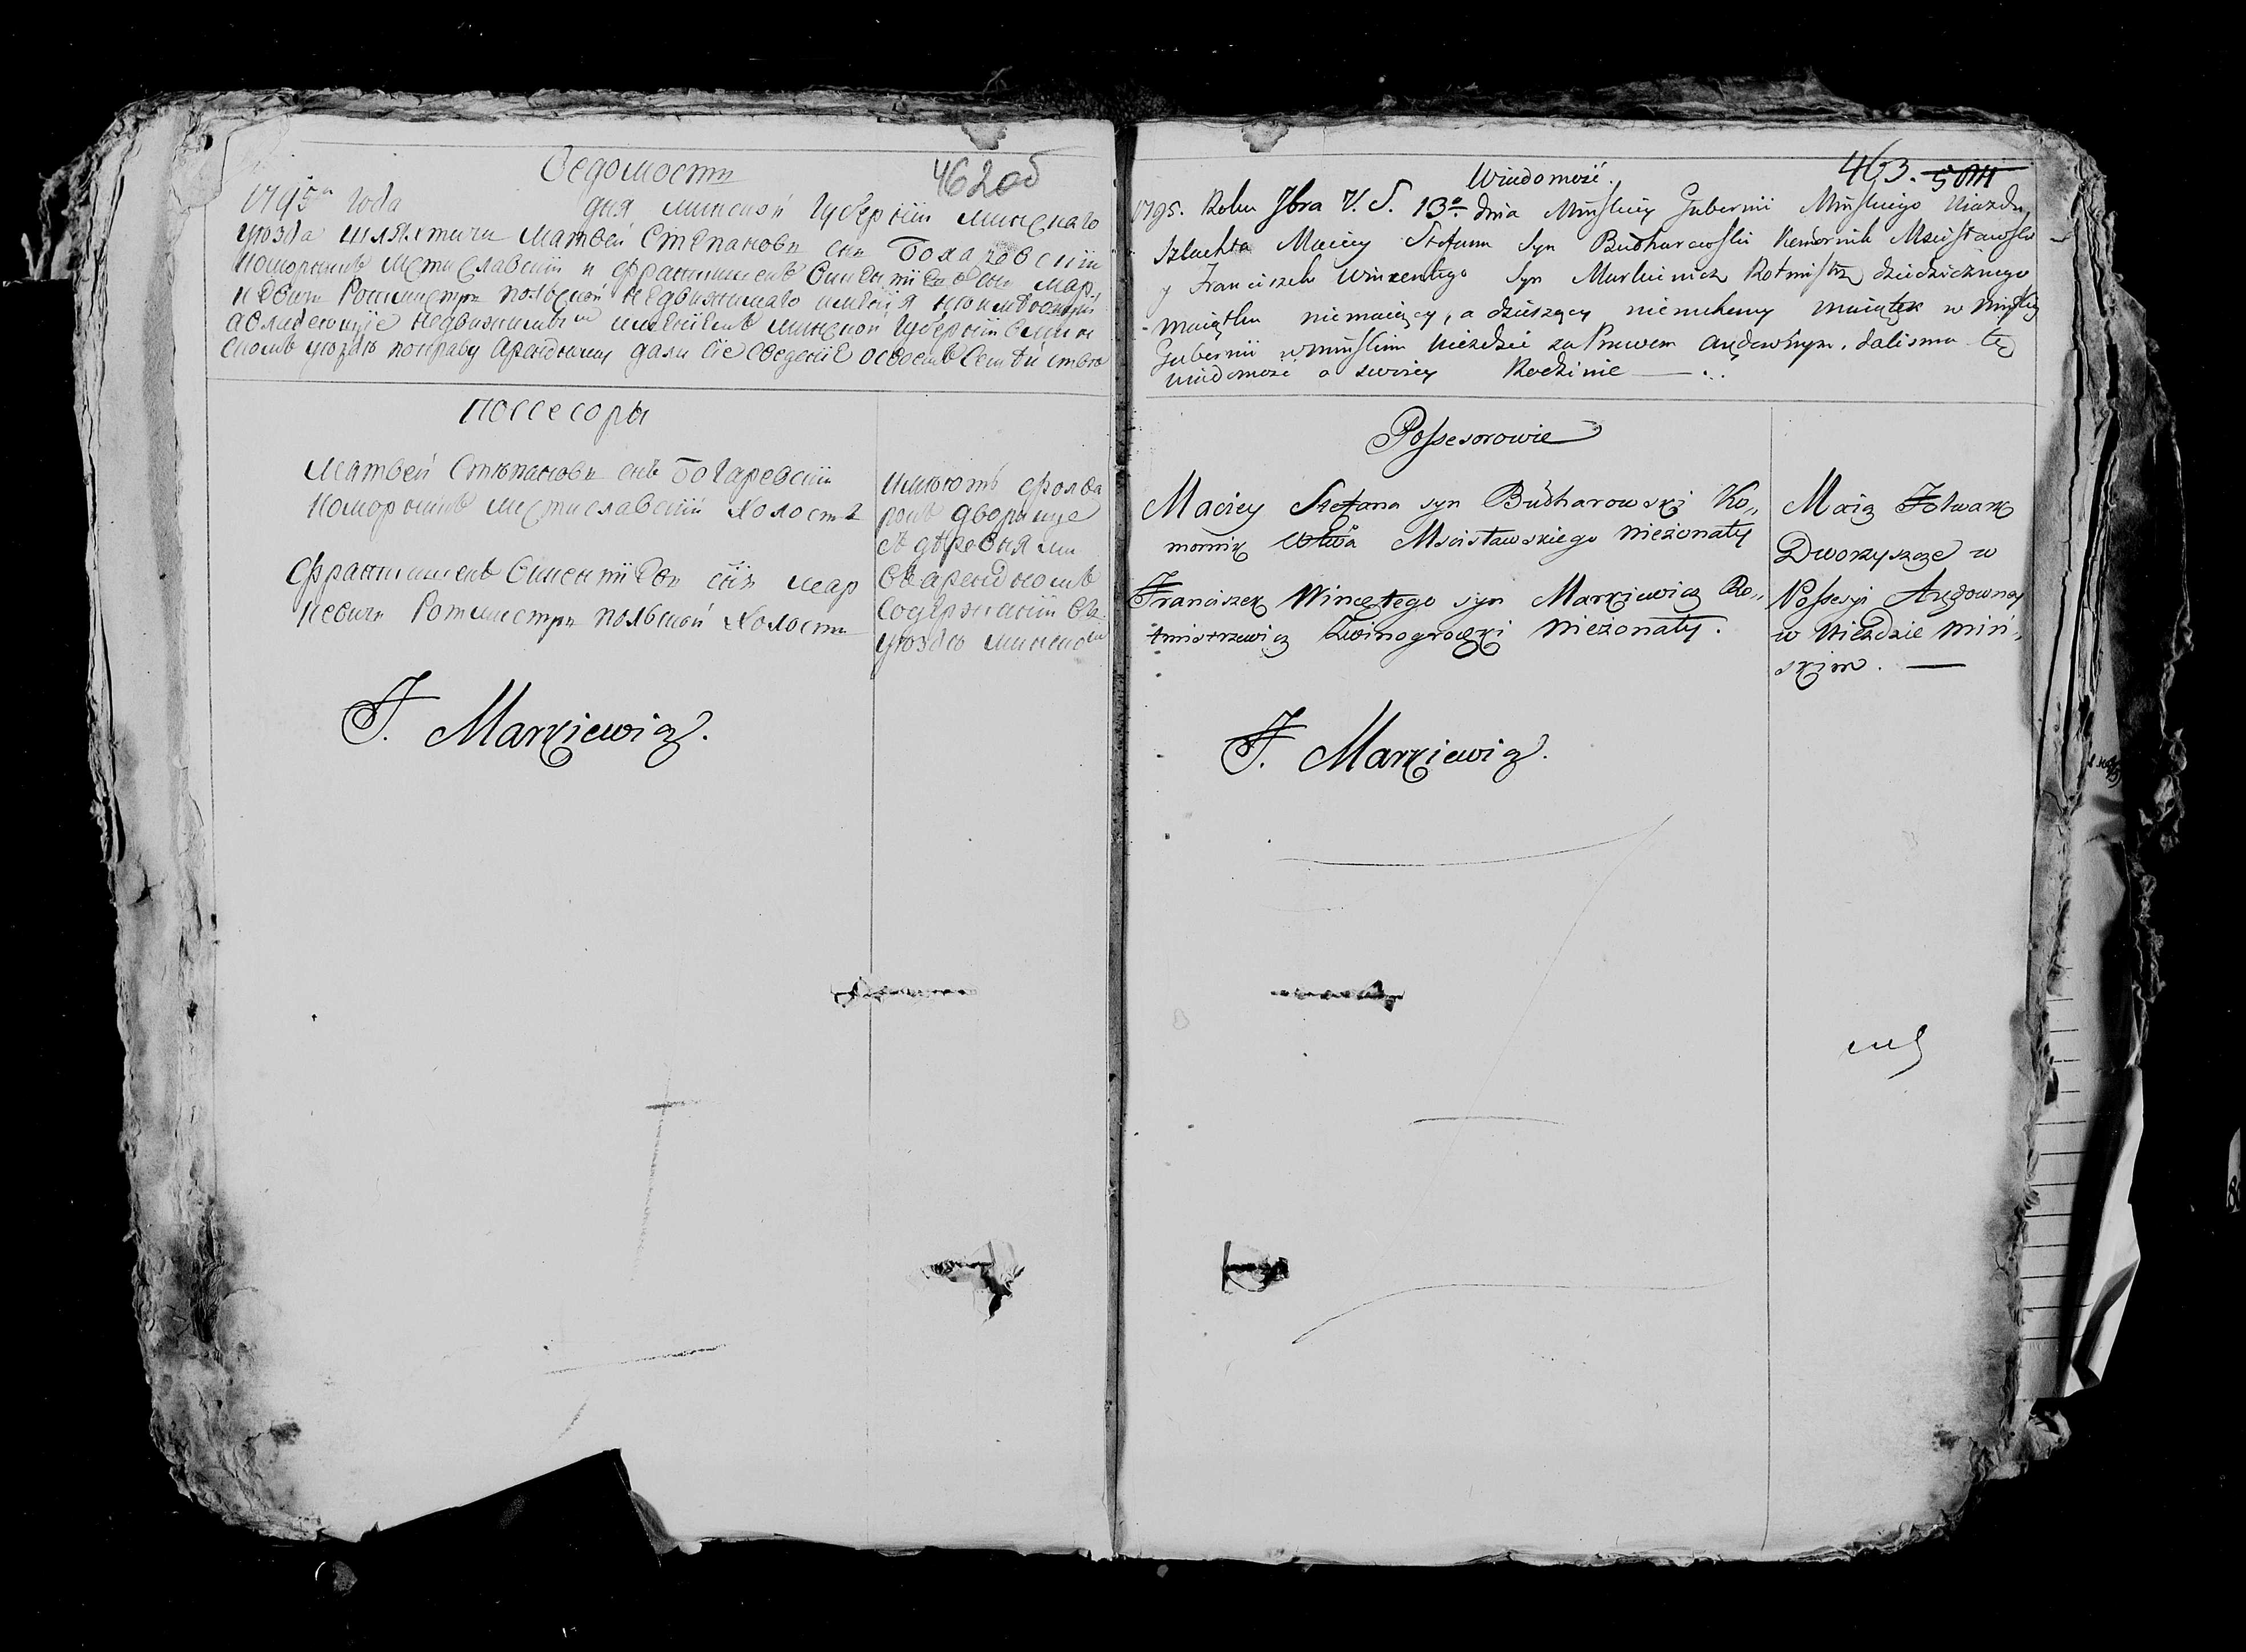 Ведомость
462об
1795го Года дня минской Губернии минскаго
уезда шляхтичи Матвей Степановъ сын Бохаровский
коморникъ мстиславский и Францишекъ Винцентиевъ сын Мар
кевичь Ротмистръ польской недвижимаго имения
недвижимым имениемъ минской Губернии в мин
скомъ уезде по праву арендному дали сие сведение о своемъ семействе
поссесоры
Матвей Степановъ снъ Богаревский
коморникъ мстиславский холостъ
Францишекъ Винентиевъ снъ мар
кевичь Ротмистръ польской холостъ
имеютъ фолва
рокъ дворыще
съ деревнями
въ арендномъ
содержании въ
уезде минском
F. Markiewicz.
Wiadomość.
463. 504
1795. Roku Jbra V. S. 13o dnia Mińskiey Gubernii Mińskiego Uiazdu,
Szlachta Maciey Stefana Syn Bucharowski Komornik Mscisławski
y Franciszek Winzentego Syn Markiewicz Rotmistrz dziedzicznego
maiątku niemaiący, a dzierżący nieruchomy maiątek w Mińskiey
Gubernii w Mińskim Uieździe za Prawem Arędownym. dalismo tę
wiadomość o swoiey Rodzinie
Possesorowie
Maciey Stefana syn Bucharowski Ko„
mornik Wtwa Mscisławskiego Nieżonaty
Franciszek Wincętego syn Markiewicz Ro„
tmistrzewicz Zwinogrodzki Nieżonaty.
Maią Folwark
Dworzyszcze w
Possesyi Arędowney
w Uieździe Miń„
skim.
F. Markiewicz.